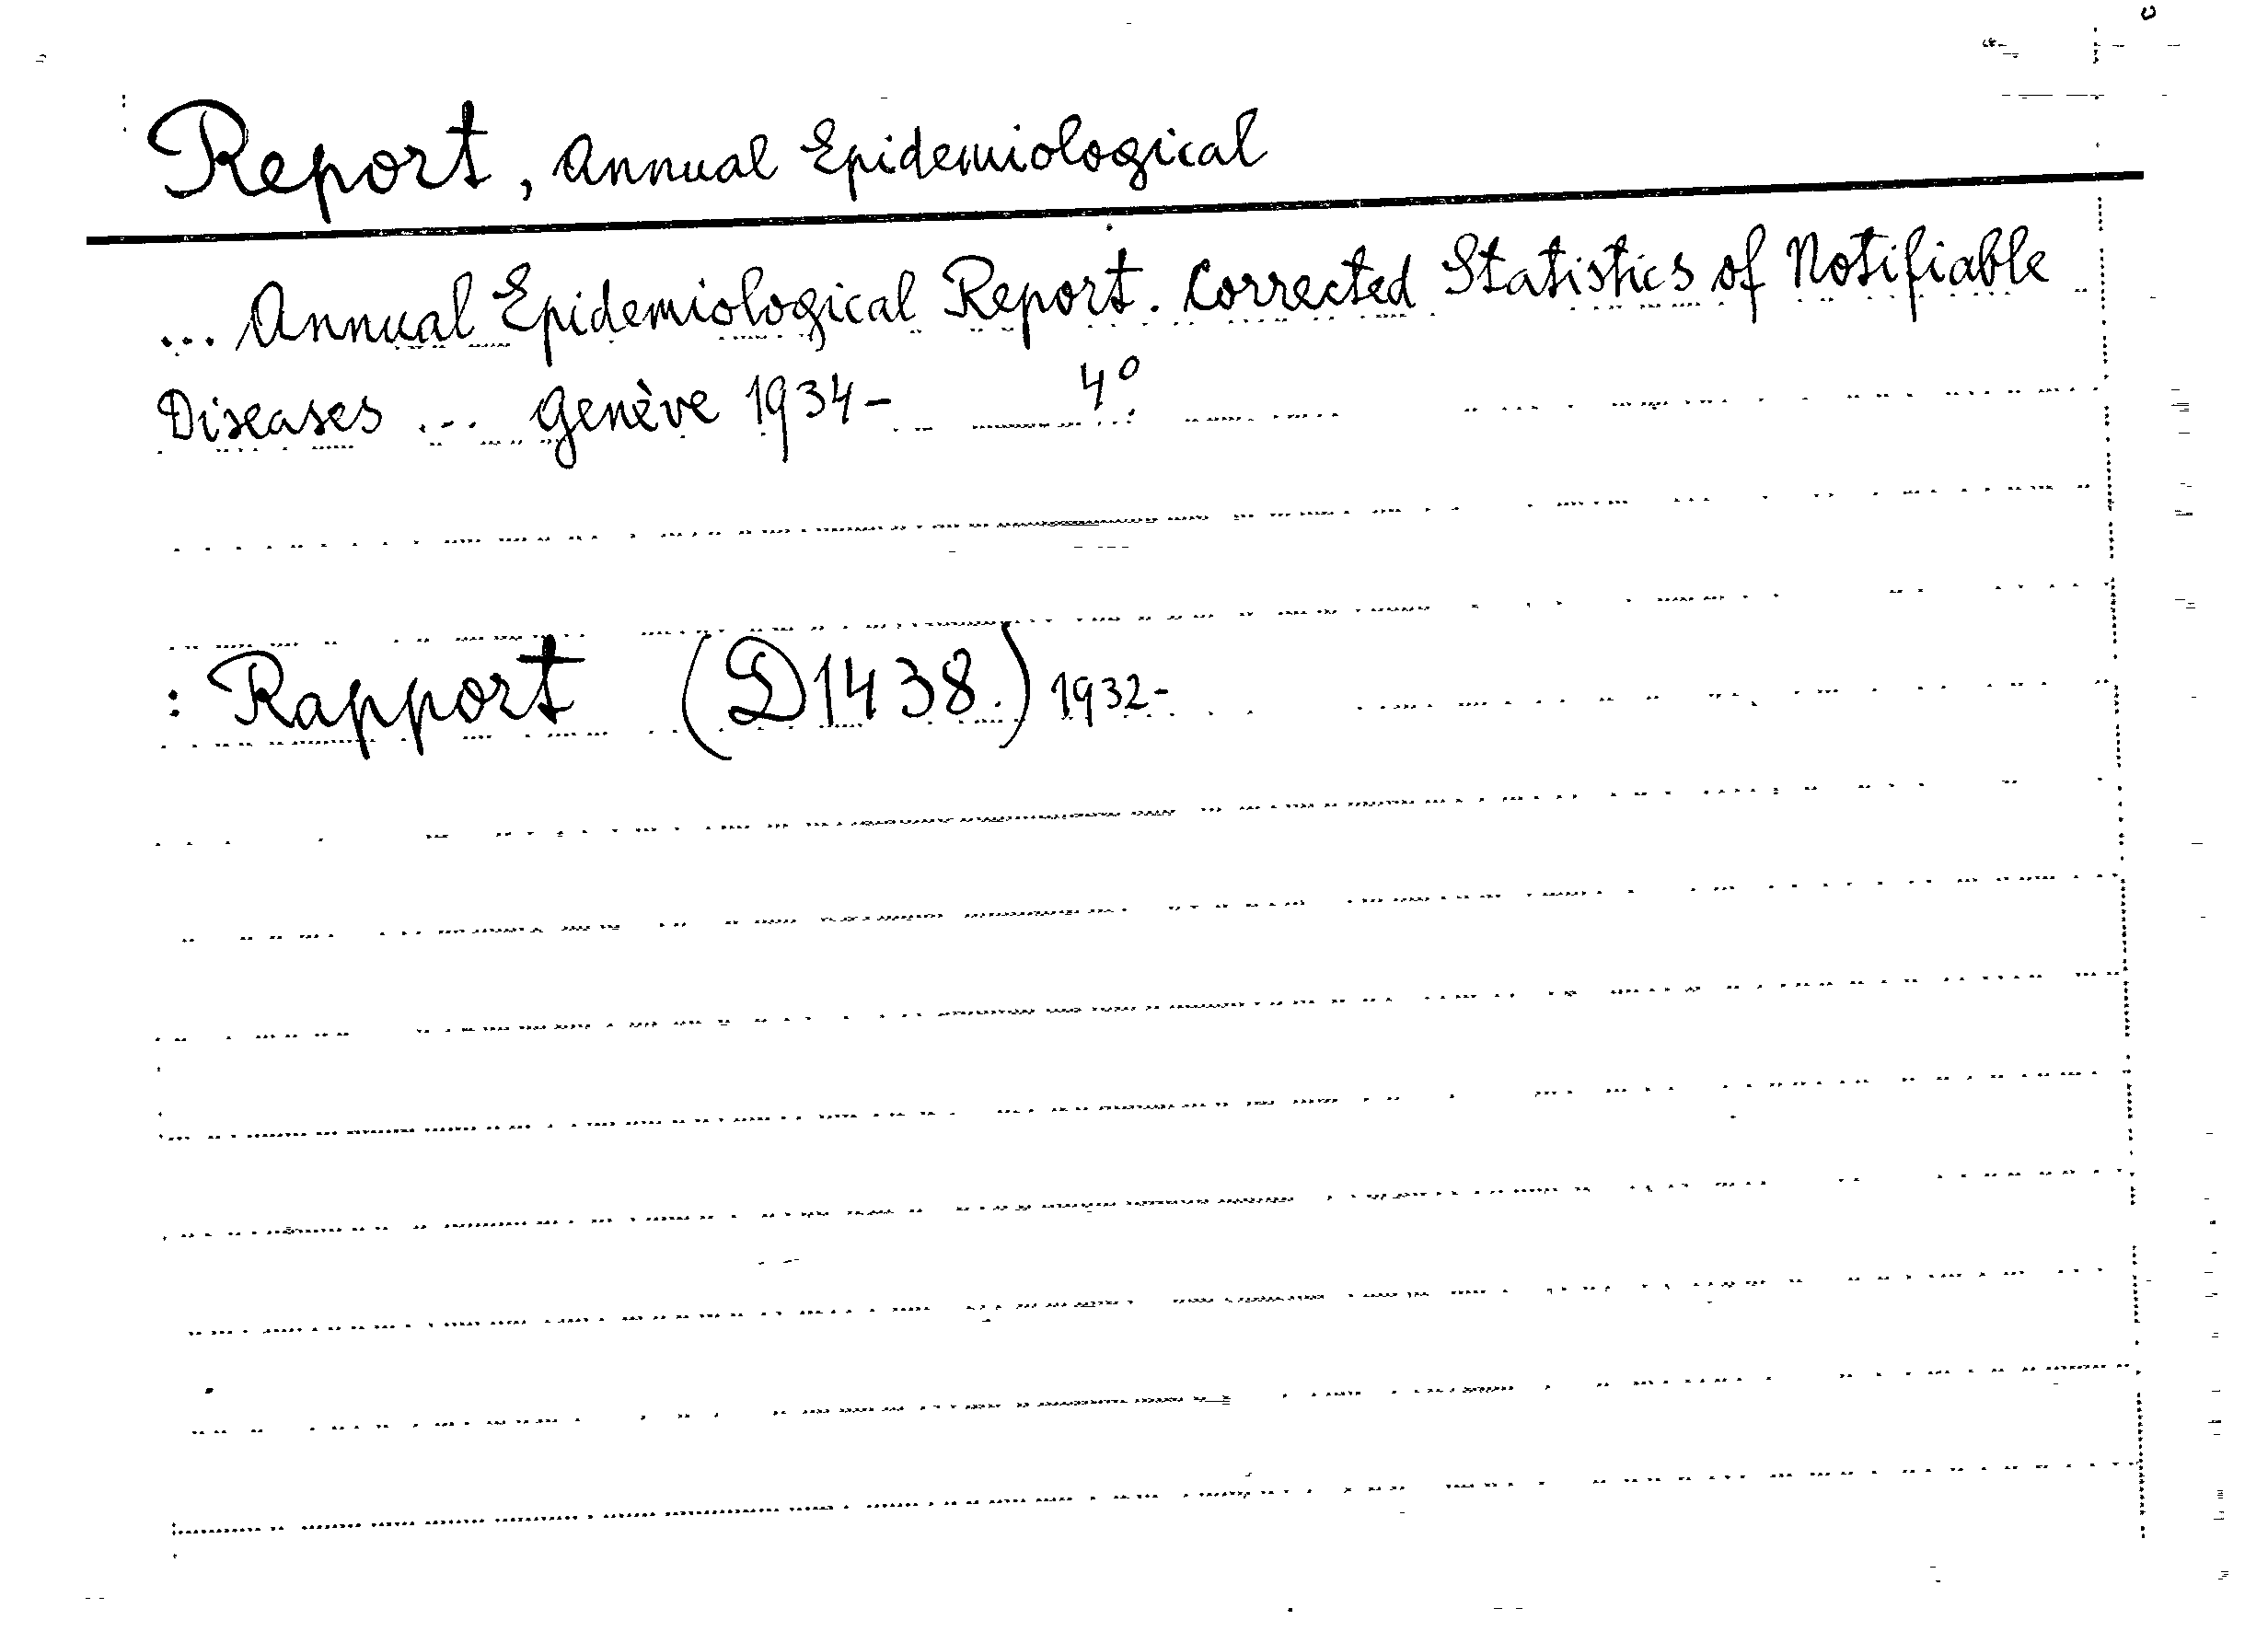 Report, Annual Epidemiological
... Annual Epidemiological Report. Corrected Statistics of Notifiable
Diseases ... Genève 1934- 4°
: Rapport (D1438.) 1932-